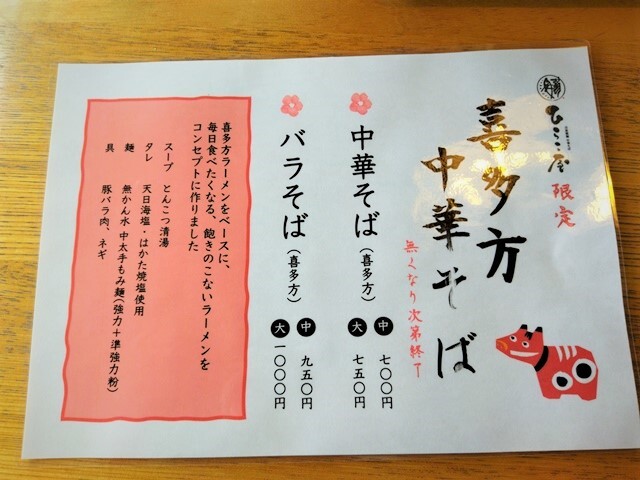 ひらこ屋
限定
喜多方
中華そば
無くなり次第終了
中華そば(喜多方)
中 七〇〇円
大 七五〇円
バラそば(喜多方)
中 九五〇円
大 一〇〇〇円
喜多方ラーメンをベースに、
毎日食べたくなる、飽きのこないラーメンを
コンセプトに作りました
スープ とんこつ清湯
タレ 天日海塩・はかた焼塩使用
麺 無かん水 中太手もみ麺(強力+準強力粉)
具 豚バラ肉、ネギ